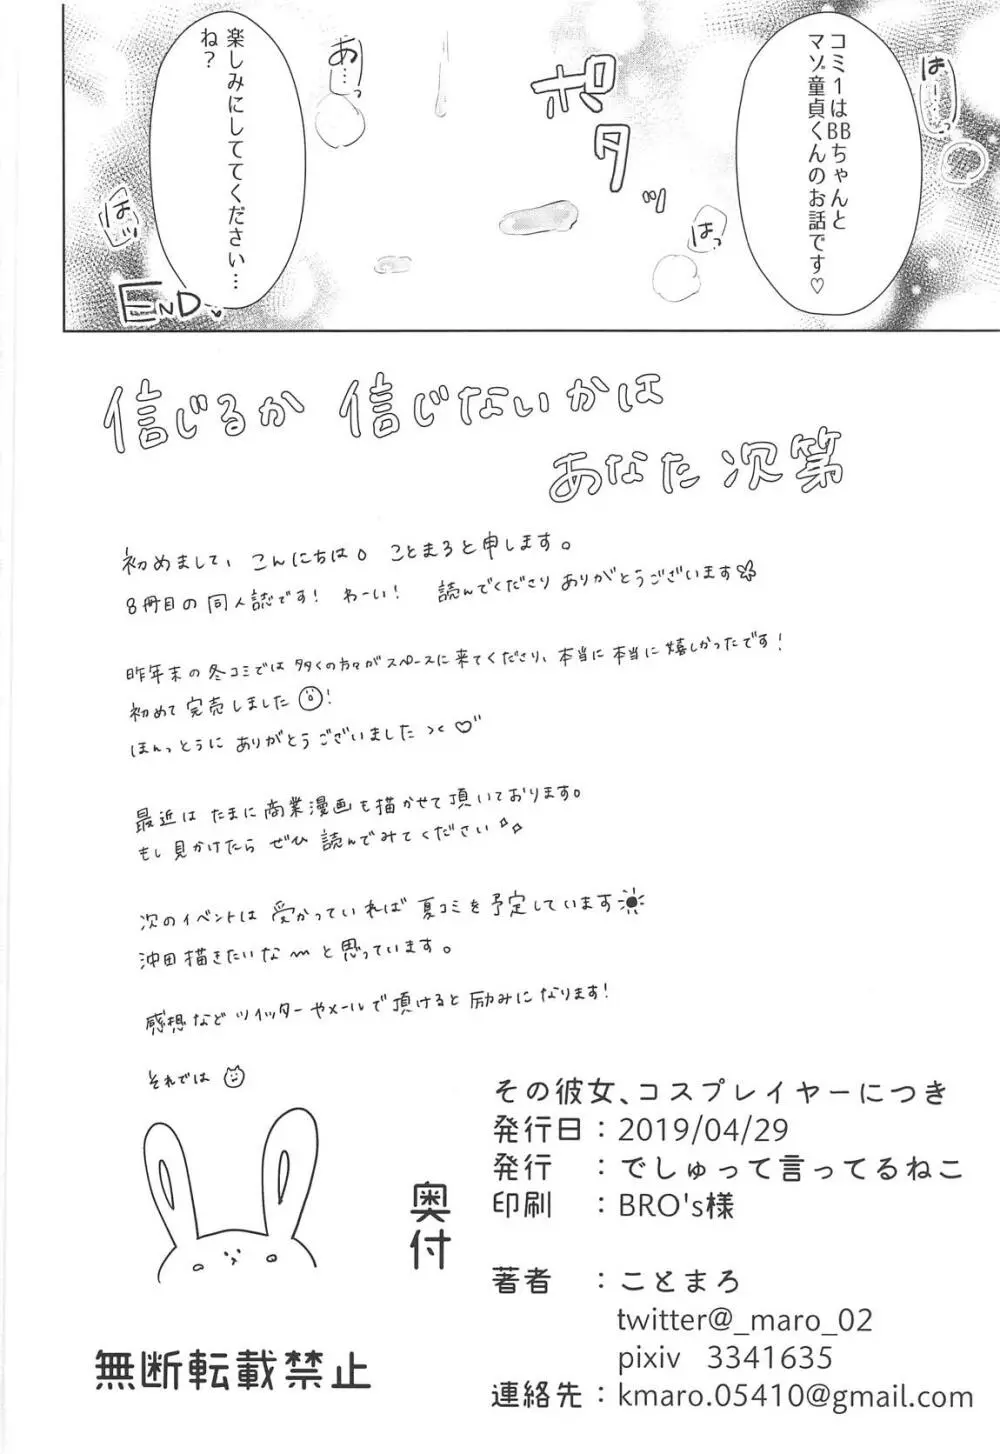 コミ1はBBちゃんと
マゾ童貞くんのお話です♡
はー…っ
ポタッ
はっ
あ…っ
楽しみにしててください…
ね?
はーっ
END
信じるか 信じないかは
あなた次第
初めまして、こんにちは。ことまろと申します。
8冊目の同人誌です! わーい! 読んでくださりありがとうございます
昨年末の冬コミでは多くの方々がスペースに来てくださり、本当に本当に嬉しかったです!
初めて完売しました!
ほんっとうにありがとうございました ><♡
最近はたまに商業漫画も描かせて頂いております。
もし見かけたらぜひ読んでみてください
次のイベントは受かっていれば夏コミを予定しています☀
沖田描きたいな〜と思っています。
感想などツイッターやメールで頂けると励みになります!
それでは
奥付
その彼女、コスプレイヤーにつき
発行日:2019/04/29
発行 :でしゅって言ってるねこ
印刷 :BRO's様
著者 :ことまろ
twitter@_maro_02
pixiv 3341635
連絡先:kmaro.05410@gmail.com
無断転載禁止